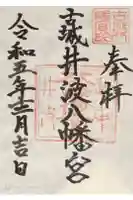 奉拝
古城井波八幡宮
令和五年十二月吉日